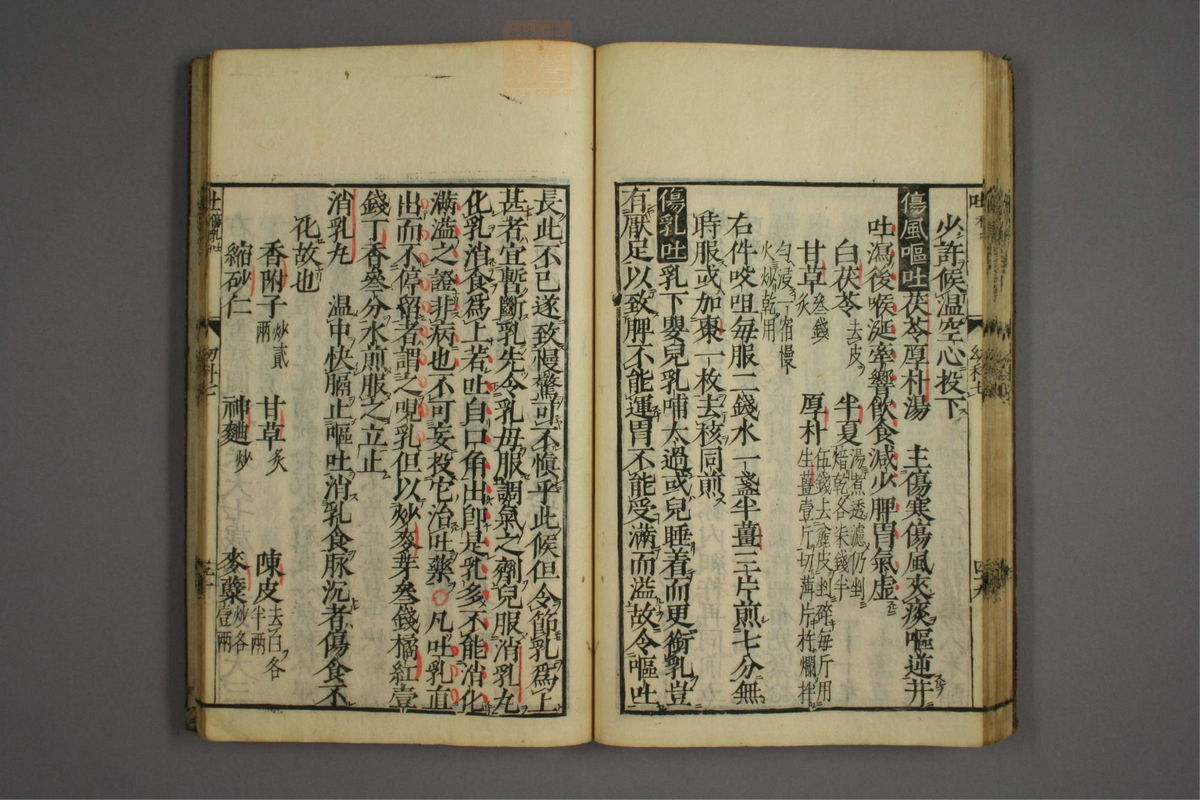 少許候温空心投下
傷風嘔吐茯苓厚朴湯　主傷寒傷風夾痰嘔逆并
吐瀉後喉涎牽響飲食減少脾胃氣虚
白茯苓去皮　半夏湯煮透濾仍剉焙乾各柒錢半
甘草叁錢炙　厚朴伍錢去麁皮剉碎每斤用生薑壹斤切薄片杵爛拌
匀浸一宿慢火炒乾用
右件㕮咀每服二錢水一盞半薑三片煎七分無
時服或加棗一枚去核同煎
傷乳吐乳下嬰兒乳哺太過或兒睡着而更銜乳豈
有厭足以致脾不能運胃不能受滿而溢故令嘔吐
長此不已遂致慢驚可不愼乎此候但令節乳爲上
甚者宜暫斷乳先令乳母服調氣之劑兒服消乳丸
化乳消食爲上若吐自口角出卽是乳多不能消化
滿溢之證非病也不可妄投它治吐藥○凡吐乳直
出而不停留者謂之哯乳但以炒麥芽叁錢橘紅壹
錢丁香叁分水煎服之立止
消乳丸　温中快膈止嘔吐消乳食脉沉者傷食不
化故也
香附子炒貳兩　甘草炙　陳皮去白各半兩
縮砂仁　神麯炒　麥蘗炒各壹兩
吐
幼科七
吐傷乳吐
幼科七